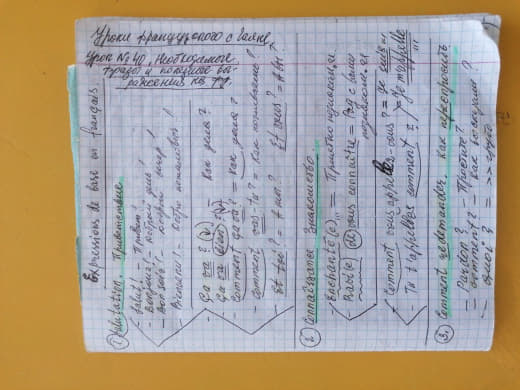 Уроки французского с
Урок № 40, Необходимые
фразы и полезные вы-
ражения на фр.
Expressions de base en français.
① Salutation. Приветствие.
- Salut! - Привет!
- Bonjour! - Добрый день!
- Bonsoir! - Добрый вечер!
- Bienvenu! - Добро пожаловать!
- Ça va? - Как дела?
- Ça va bien?
- Comment ça va? = Как дела?
- Comment vas-tu? = Как поживаешь?
- Et toi? = А ты? Et vous? = А вы?
② Connaissance Знакомство.
- Enchanté(e) = Приятно познакомиться
- Ravi(e) de vous connaître = Рад с вами познакомиться
- Comment vous appelez-vous? = Je suis...
- Tu t'appelles comment? = Je m'appelle...
③ Comment redemander. Как переспросить
- Pardon? - Простите?
- Comment? - Как вы сказали?
- Quoi? =